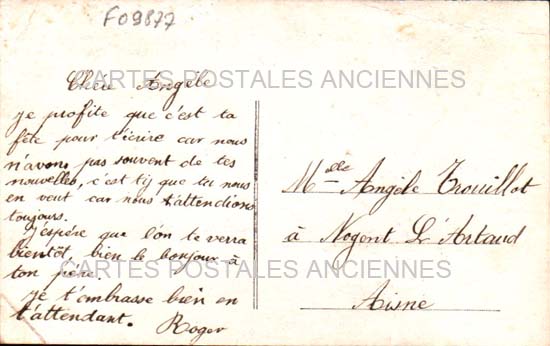 F09877
Chère Angèle
CARTES POSTALES ANCIENNES
je profite que c'est ta
fête pour t'écrire car nous
n'avons pas souvent de tes
nouvelles, c'est tij que tu nous
en veut car nous t'attendions
toujours.
J'espère que l'on te verra
bientôt, bien le bonjour à
ton père.
Je t'embrasse bien en
t'attendant. Roger
Melle Angèle Trouillot
à Nogent L'Artaud
CARTES POSTALES ANCIENNES
Aisne